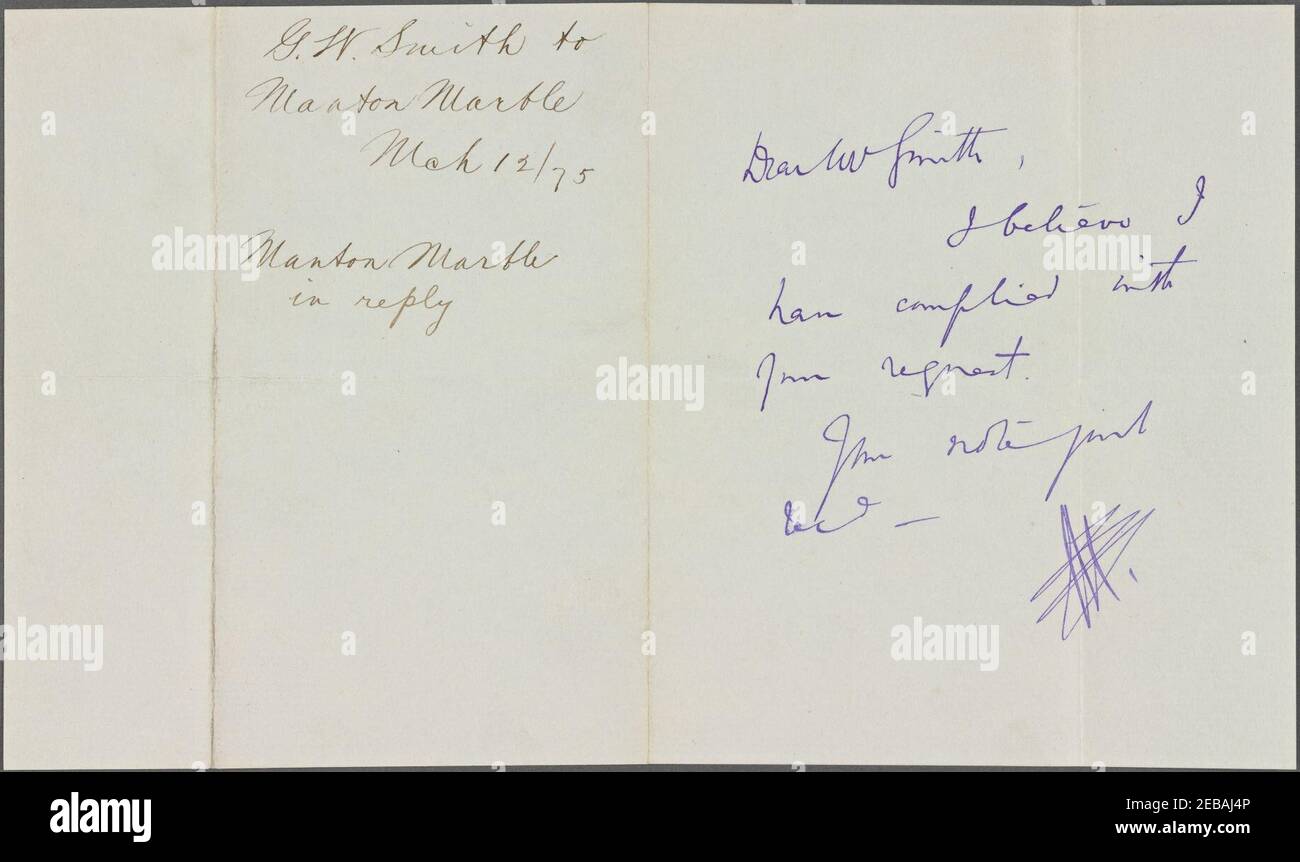 G. W. Smith to
Manton Marble
Mch 12/75
Manton Marble
in reply
Dear Mr Smith,
I believe I
have complied with
your request.
Your note just
recd —
alamy
alamy
alamy
alamy
alamy
alamy
Image ID: 2EBAJ4P
www.alamy.com